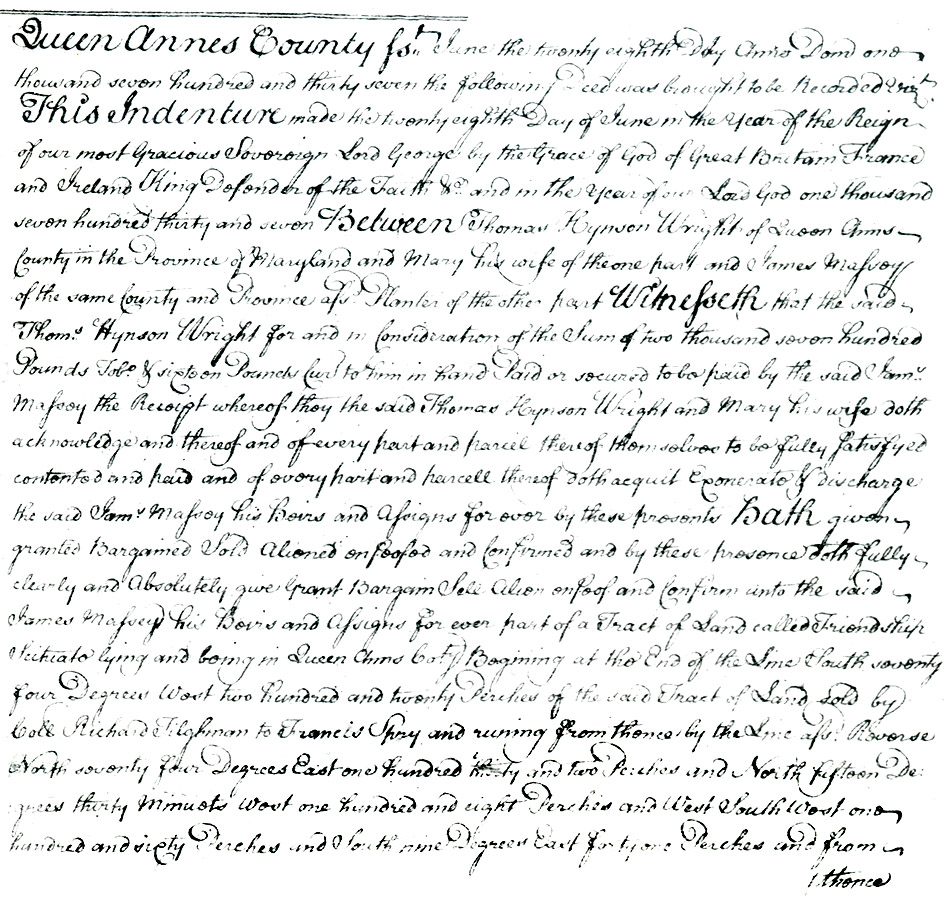 Queen Annes County fst. June the twenty eighth Day Anno Dom one
thousand seven hundred and thirty seven the following Deed was brought to be Recorded Vizt.
This Indenture made the twenty eighth Day of June in the Year of the Reign
of our most Gracious Sovereign Lord George by the Grace of God of Great Britain France
and Ireland King Defender of the Faith &c. and in the Year of our Lord God one thousand
seven hundred thirty and seven Between Thomas Hynson Wright of Queen Anns
County in the Province of Maryland and Mary his wife of the one part and James Massey
of the same County and Province afsd. Planter of the other part Witnesseth that the said
Thoms. Hynson Wright for and in Consideration of the Sum of two thousand seven hundred
Pounds Tobo. & sixteen Pounds Curt. to him in hand Paid or secured to be paid by the said Jams.
Massey the Receipt whereof they the said Thomas Hynson Wright and Mary his wife doth
acknowledge and thereof and of every part and parcel thereof themselves to be fully satisfyed
contented and paid and of every part and parcell thereof doth acquit Exonerate & discharge
the said Jams. Massey his Heirs and Assigns for ever by these presents Hath given
granted Bargained Sold Aliened enfeofed and Confirmed and by these presence doth fully
clearly and Absolutely give Grant Bargain Sell Alien enfeof and Confirm unto the said
James Massey his Heirs and Assigns for ever part of a Tract of Land called Friendship
Scituate lying and being in Queen Anns Coty. Begining at the End of the Line South seventy
four Degrees West two hundred and twenty Perches of the said Tract of Land sold by
Coll Richard Tilghman to Francis Spry and runing from thence by the Line afsd. Reverse
North seventy four Degrees East one hundred thirty and two Perches and North fifteen De-
grees thirty Minuets West one hundred and eight Perches and West South West one
hundred and sixty Perches and South nine Degrees East forty one Perches and from
thence